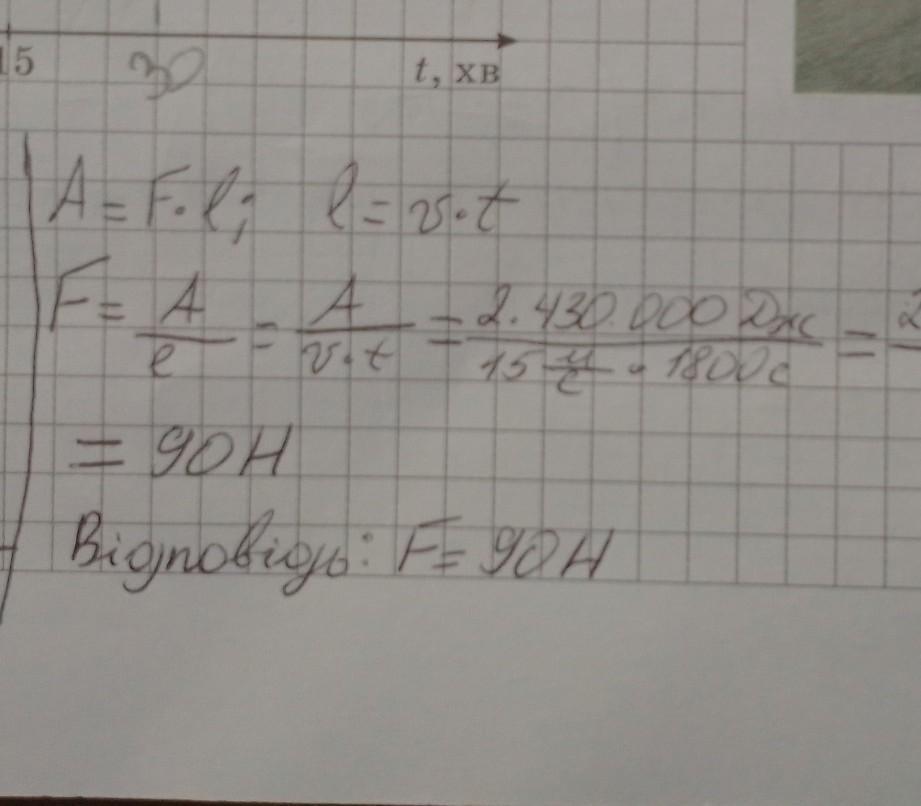 15 30 t, хв
A = F · l; l = v · t
F = A/l = A/(v · t) = 2.430.000 Дж/(15 м/с · 1800 с) = 2
= 90 Н
Відповідь: F = 90 Н